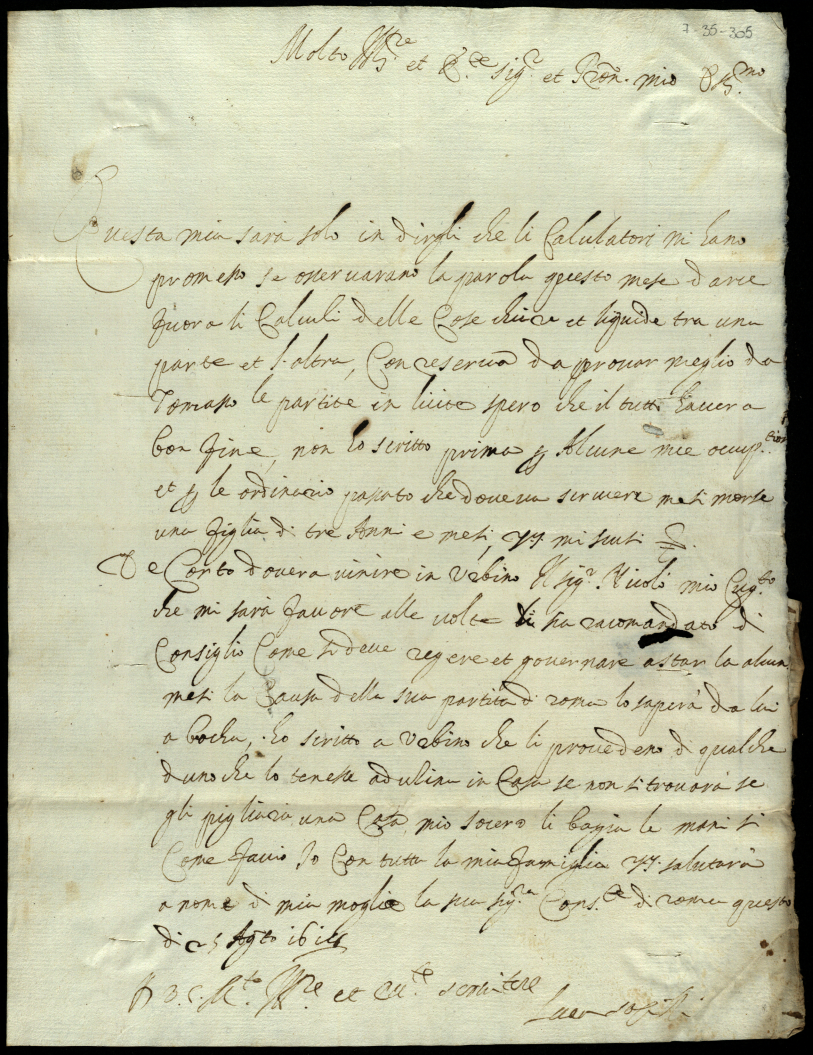 7-35-305
Molto Ill.re et sig.r et Pron. mio
Questa mia sarà solo in dirgli che li Calculatori mi hano
promesso se osservarano la parola questo mese darce
fuora li Calculi delle Cose chiare et liquide tra una
parte et l'altra, Con reserva da provar meglio da
Tomaso le partite in liite spero che il tutto havera
bon fine, non ho scritto prima Alcune mie ocup.tion
et le ordinario pasato che doveva scrivere mesi morse
una figlia di tre Anni e mesi, mi scusi
De Corto dovera vinire in Urbino Il sig.r Nicolò mio Cug.to
che mi sarà favore alle volte sia racomandato di
Consiglio Come si deve regere et governare a star la alcun
mesi la Causa della sua partita di roma lo saperà da lui
a bocha, ho scritto a Urbino che li provedeno di qualche
duno che lo tenesse a dulina in Casa se non si trovarà se
gli pigliarà una Casa mio socero li bagia le mani si
Come facio Io Con tutta la mia famiglia salutarà
a nome di mia moglie la sua sig.ra Cons.te di roma questo
di 25 Agto
D. V. S. M.to Ill.re et servitore